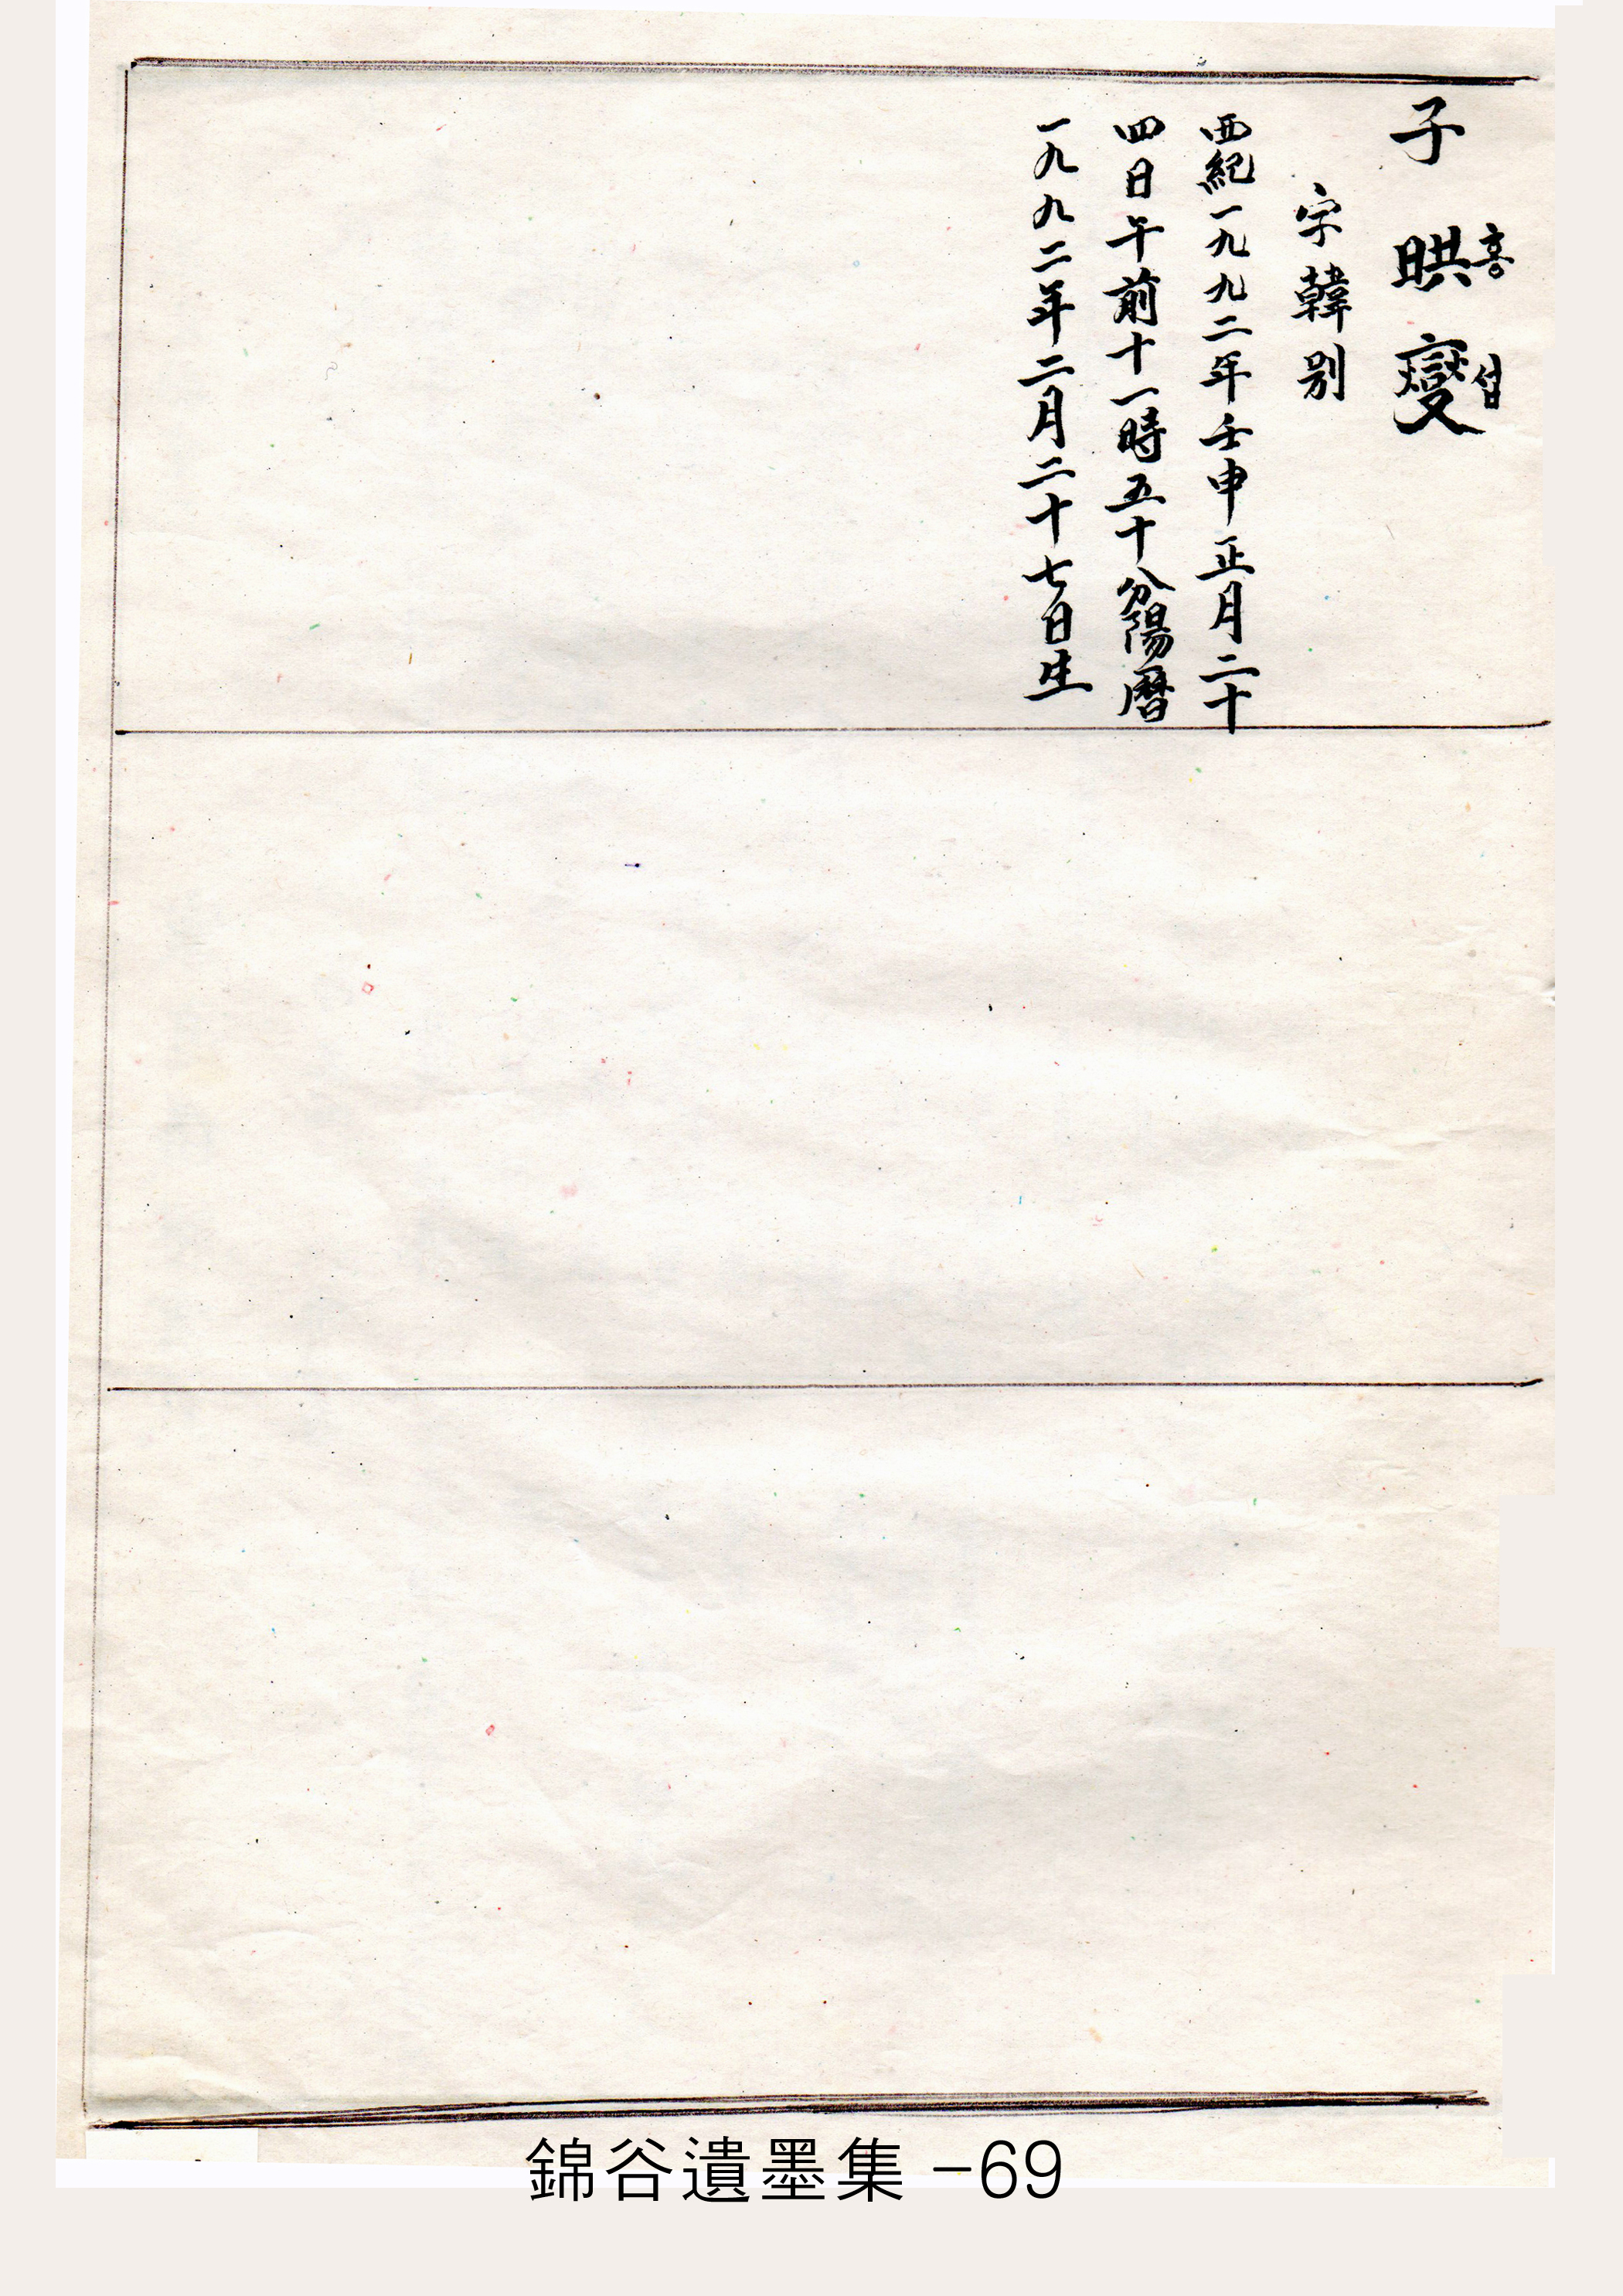 子 晎 燮
홍 섭
字 韓别
西紀一九九二年壬申正月二十
四日午前十一時五十分陽曆
一九九二年二月二十七日生
錦谷遺墨集 -69